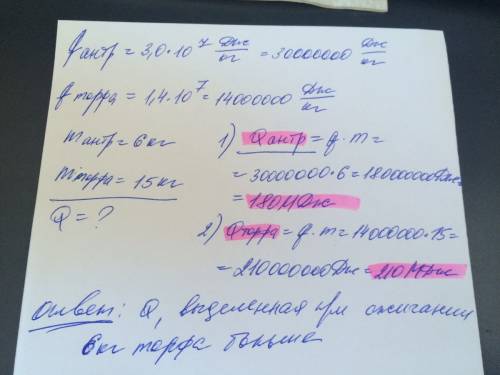 qантр = 3,0·10⁷ Дж/кг = 30000000 Дж/кг
qторфа = 1,4·10⁷ = 14000000 Дж/кг
mантр = 6 кг
mторфа = 15 кг
Q = ?
1) Qантр = q·m =
= 30000000·6 = 180000000Дж =
= 180МДж
2) Qторфа = q·m = 14000000·15 =
= 210000000Дж = 210МДж
Ответ: Q, выделенная при сжигании
6кг торфа больше